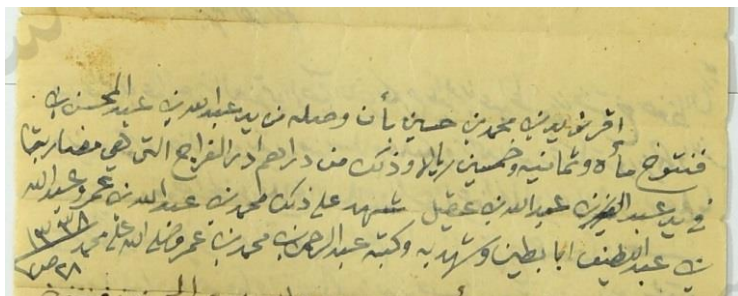 اقر فريد بن محمد بن حسين بأن وصله من يد عبدالله بن عبدالمحسن بن
فنتوخ مأه وثمانيه وخمسين ريال وذلك من دراهم الفراج التي هي مضاربتها
في يد عبدالعزيز بن عبدالله بن عقيل شهد على ذلك محمد بن عبدالله بن عمرو وعبدالله
بن عبداللطيف ابابطين وشهد به وكتبه عبدالرحمن بن محمد بن عمر وصلى الله على محمد
١٣٣٨
٢٨